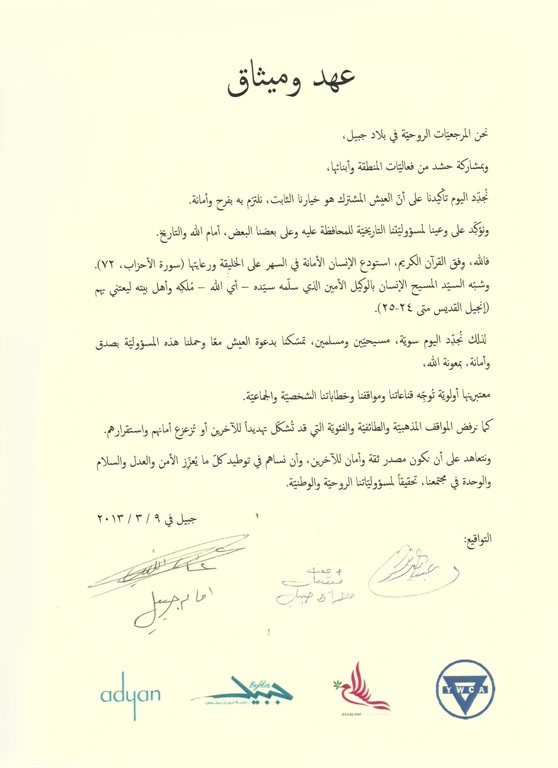 عهد وميثاق
نحن المرجعيّات الروحيّة في بلاد جبيل،
وبمشاركة حشد من فعاليّات المنطقة وأبنائها،
نُجدّد اليوم تأكيدنا على أنّ العيش المشترك هو خيارنا الثابت، نلتزم به بفرح وأمانة.
ونؤكّد على وعينا لمسؤوليّتنا التاريخيّة للمحافظة عليه وعلى بعضنا البعض، أمام الله والتاريخ.
فالله، وفق القرآن الكريم، استودع الإنسان الأمانة في السهر على الخليقة ورعايتها (سورة الأحزاب، ٧٢).
وشبّه السيّد المسيح الإنسان بالوكيل الأمين الذي سلّمه سيّده – أي الله – مُلكِه وأهل بيته ليعتني بهم
(إنجيل القديس متى ٢٤-٢٥).
لذلك نُجدّد اليوم سويّة، مسيحيّين ومسلمين، تمسّكنا بدعوة العيش معًا وحملنا هذه المسؤوليّة بصدق
وأمانة، بمعونة الله،
معتبرينها أولويّة تُوجّه قناعاتنا ومواقفنا وخطاباتنا الشخصيّة والجماعيّة.
كما نرفض المواقف المذهبيّة والطائفيّة والفئويّة التي قد تُشكّل تهديداً للآخرين أو تُزعزع أمانهم واستقرارهم.
ونتعاهد على أن نكون مصدر ثقة وأمان للآخرين، وأن نساهم في توطيد كلّ ما يُعزّز الأمن والعدل والسلام
والوحدة في مجتمعنا، تحقيقاً لمسؤوليّاتنا الروحيّة والوطنيّة.
جبيل في ٩ / ٣ / ٢٠١٣
التواقيع:
امام جبيل
YWCA
سلام
جبيل
Byblos
adyan